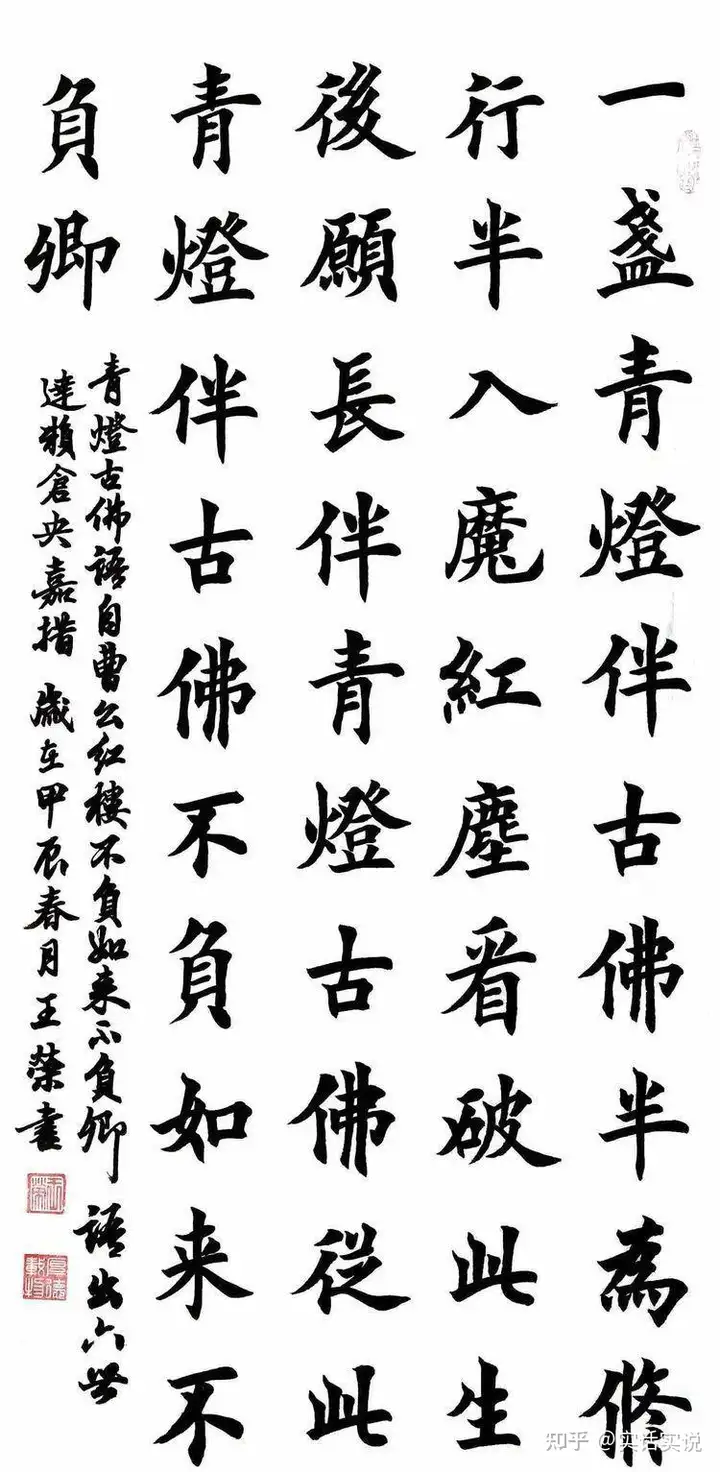 一盞青燈伴古佛半為修
行半入魔紅塵看破此生
後願長伴青燈古佛從此
青燈伴古佛不負如来不
負卿
青燈古佛語自曹公红楼不負如来不負卿 語出六世
達賴倉央嘉措 歲在甲辰春月王榮書
王榮
厚德載物
知乎 @实话实说